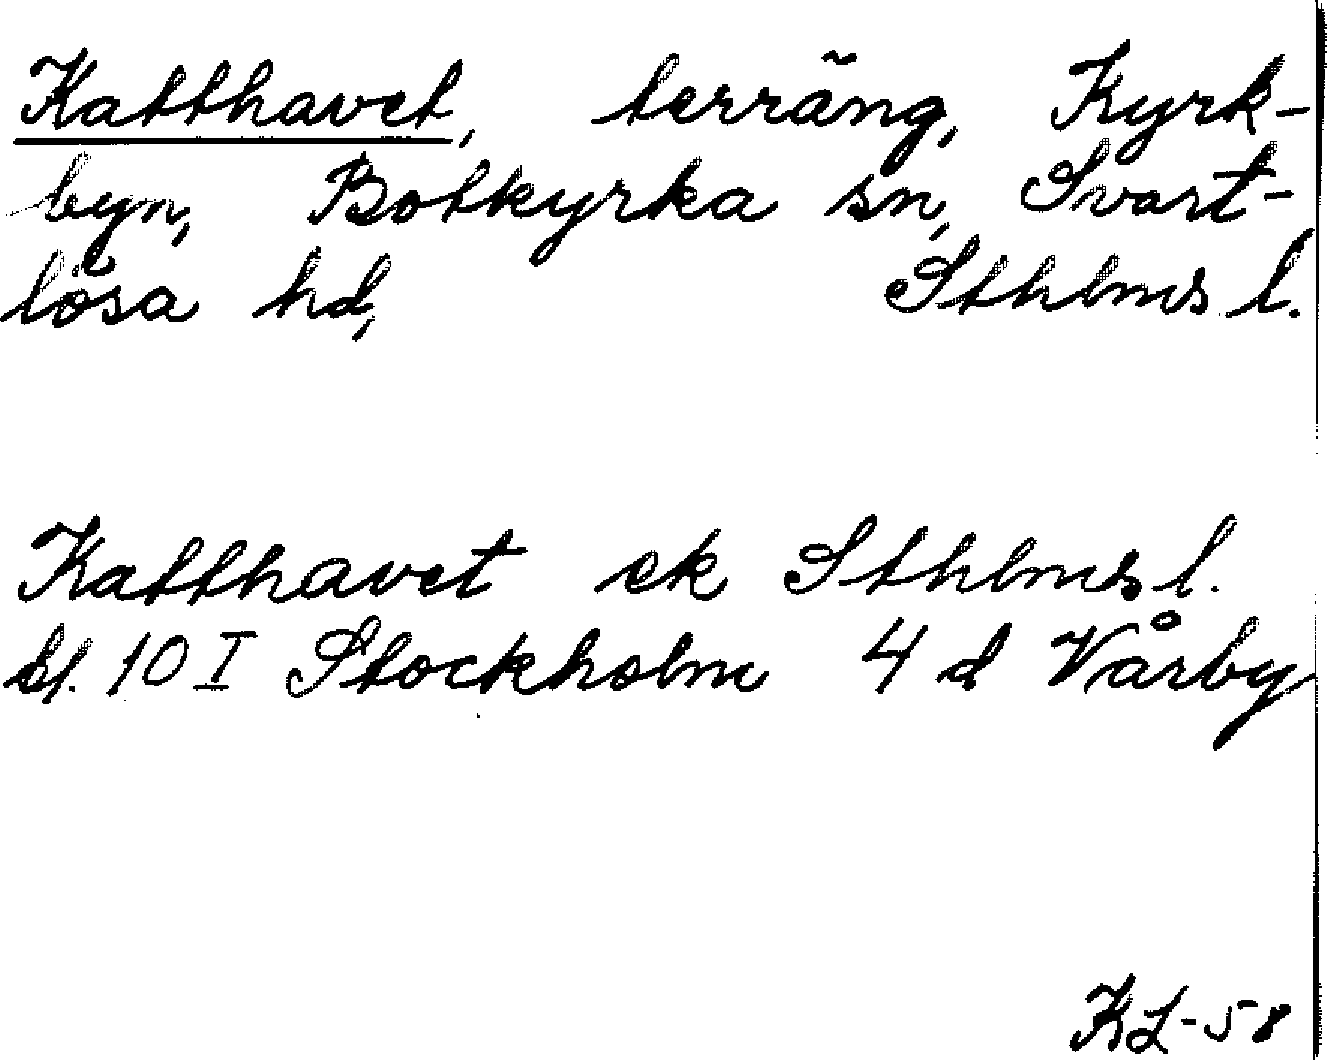 Katthavet, terräng, Kyrk-
byn, Botkyrka sn, Svart-
lösa hd, Sthlms l.
Katthavet ek Sthlms l.
bl. 10 I Stockholm 4 d Vårby
KL-58